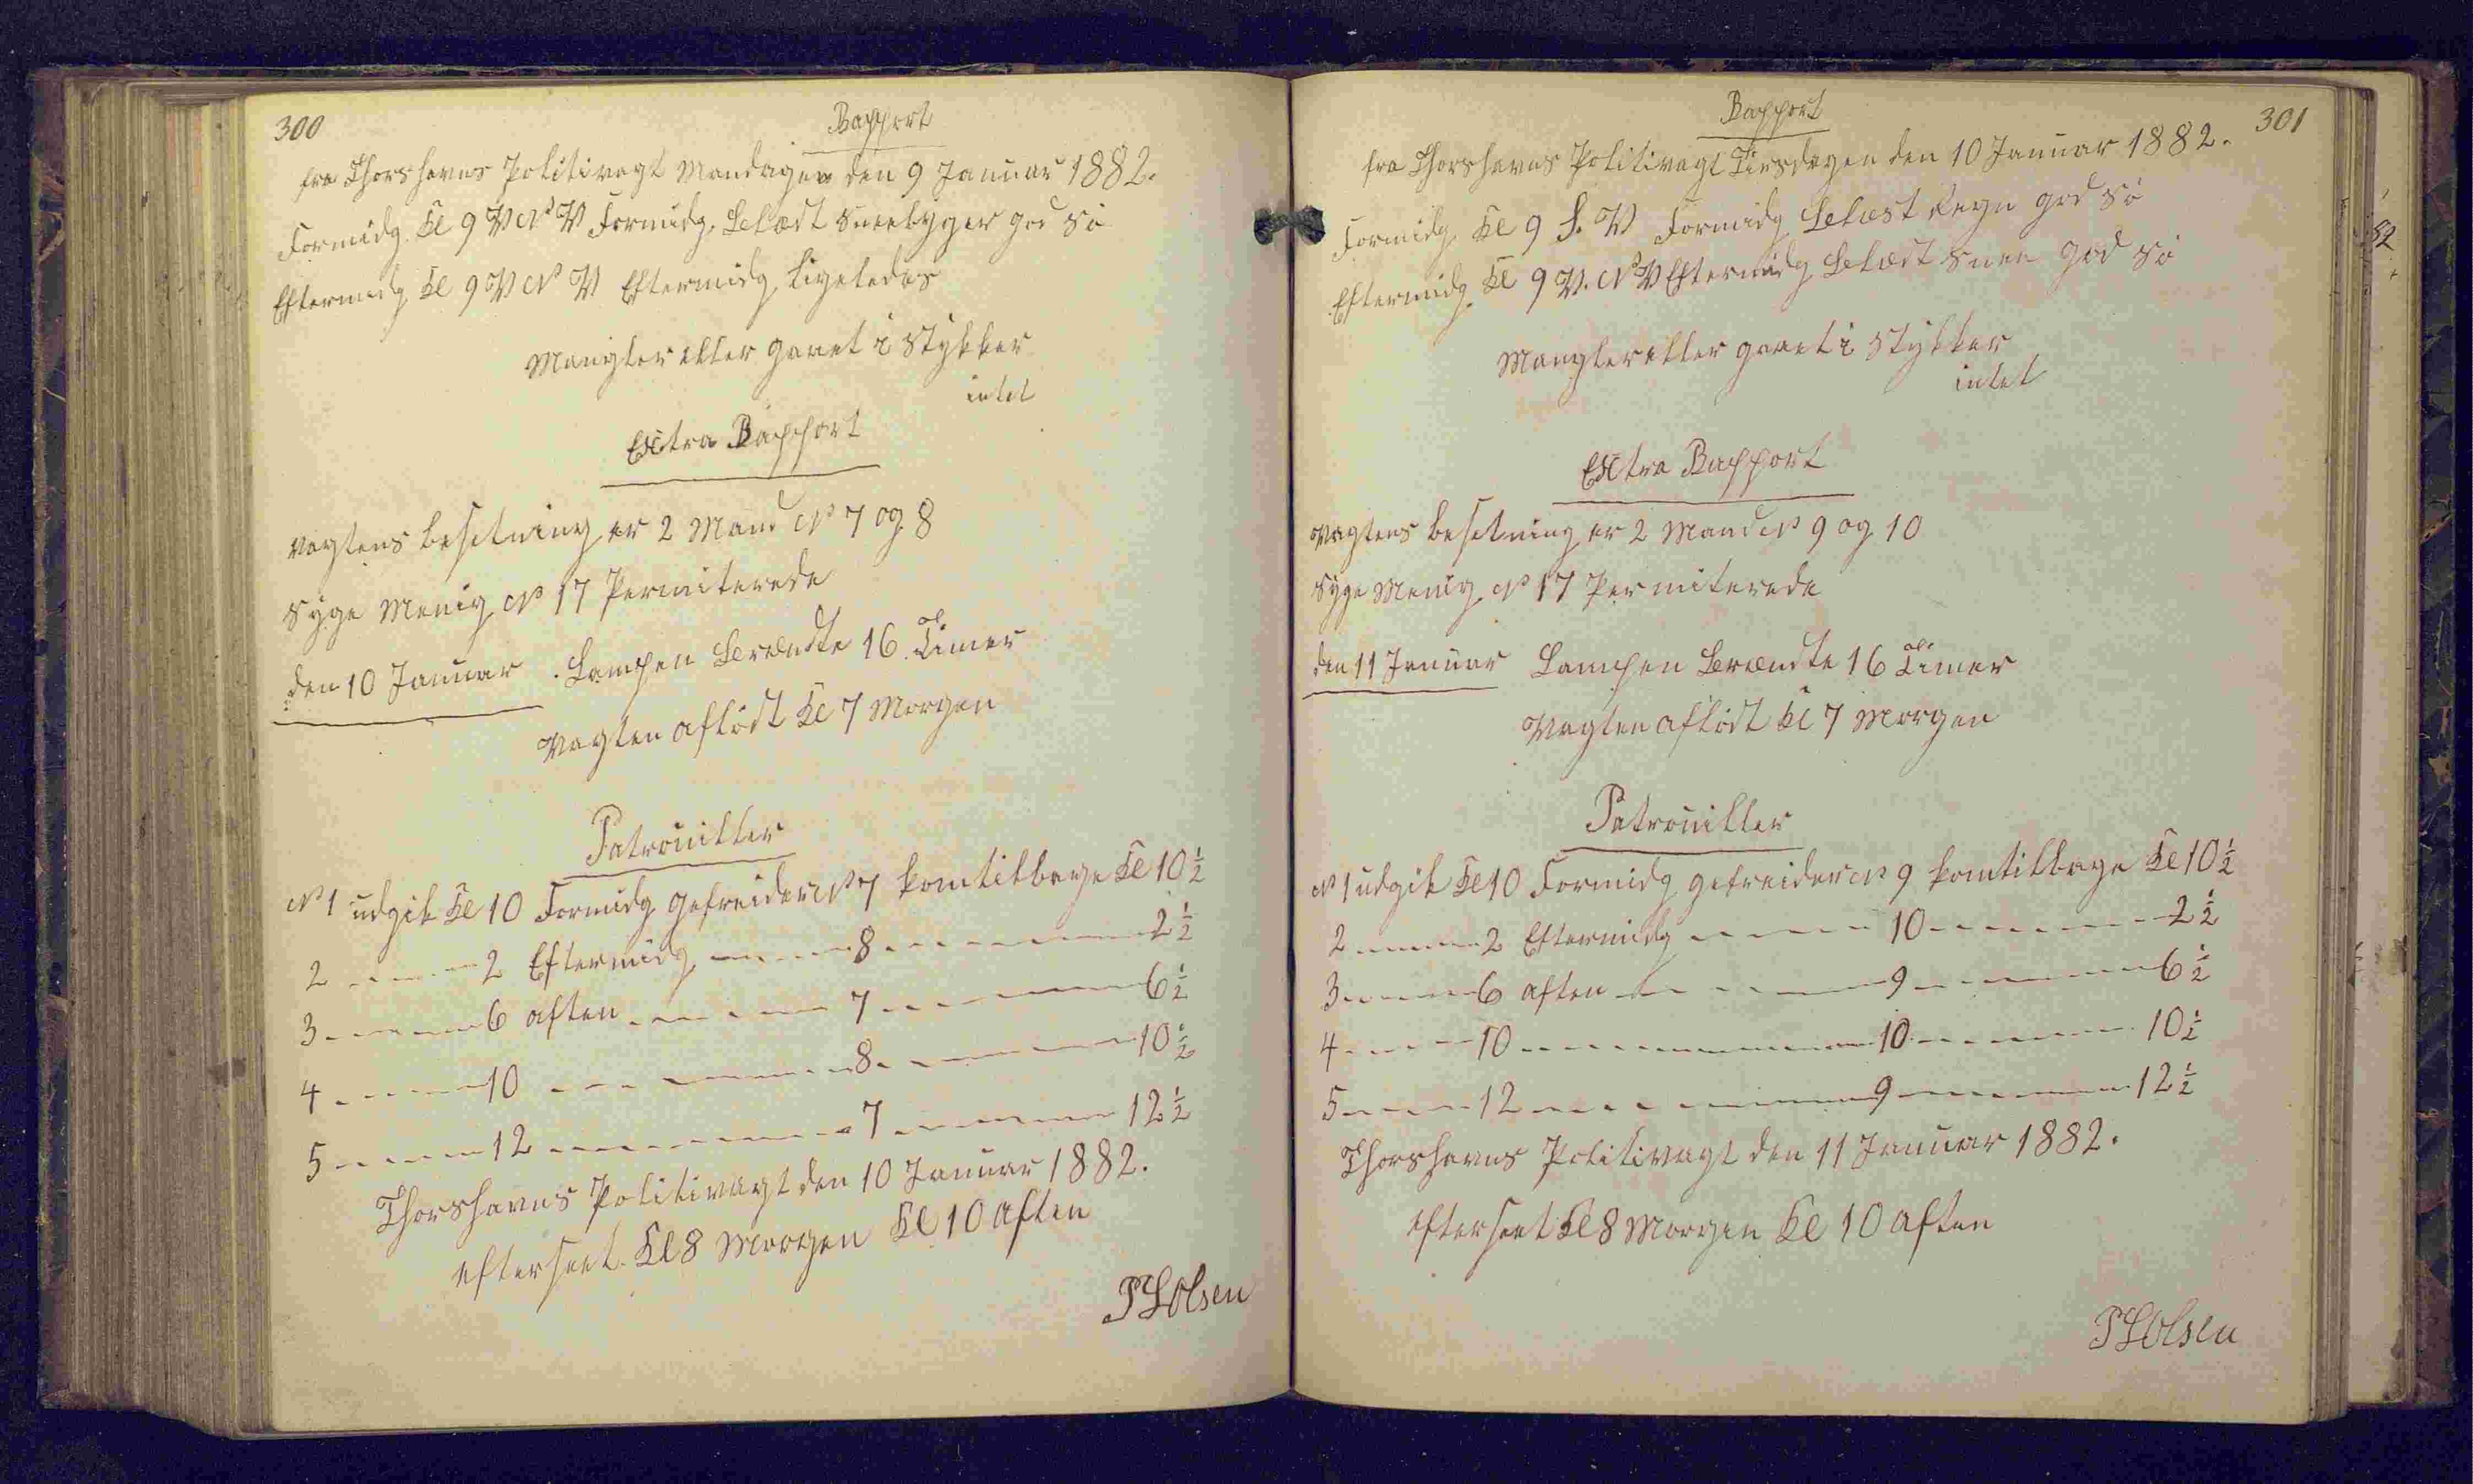 300
Rapport
fra Thorshavns Politivagt Mandagen den 9 Januar 1882.
Formidg. Kl 9 V N V Formidg. Belædt Sneebyger god Sö
Eftermidg Kl 9 V N V Eftermidg ligeledes
Mangler eller gaaet i Stykker
intet
Extra Rapport
Vagtens besetning er 2 Mand N 7 og 8
Syge Menig N 17 Permiterede
den 10 Januar . Lampen Brændte 16 Timer
Vagten aflödt Kl 7 Morgen
Patrouiller
N 1 udgik Kl 10 Formidg gefreider N 7 kom tilbage Kl 10 ½
2 ------ 2 Eftermidg ------ 8 ------ 2 ½
3 ------ 6 aften ------ 7 ------ 6 ½
4 ------ 10 ------ 8 ------ 10 ½
5 ------ 12 ------ 7 ------ 12 ½
Thorshavns Politivagt den 10 Januar 1882.
efterseet Kl 8 Morgen Kl 10 Aften
P Olsen
Rapport
301
fra Thorshavns Politivagt Tirsdagen den 10 Januar 1882.
Formidg Kl 9 S. V Formidg Belæst Regn god Sö
Eftermidg Kl 9 V. N V Eftermidg Belædt Snee god Sö
Mangler eller gaaet i Stykker
intet
Extra Rapport
Vagtens besetning er 2 Mand N 9 og 10
Syge Menig N 17 Permiterede
den 11 Januar Lampen Brændte 16 Timer
Vagten aflödt Kl 7 Morgen
Patrouiller
N 1 udgik Kl 10 Formidg gefreider N 9 kom tilbage Kl 10 ½
2 ------ 2 Eftermidg ------ 10 ------ 2 ½
3 ------ 6 aften ------ 9 ------ 6 ½
4 ------ 10 ------ 10 ------ 10 ½
5 ------ 12 ------ 9 ------ 12 ½
Thorshavns Politivagt den 11 Januar 1882.
efterseet Kl 8 Morgen Kl 10 aften
Olsen